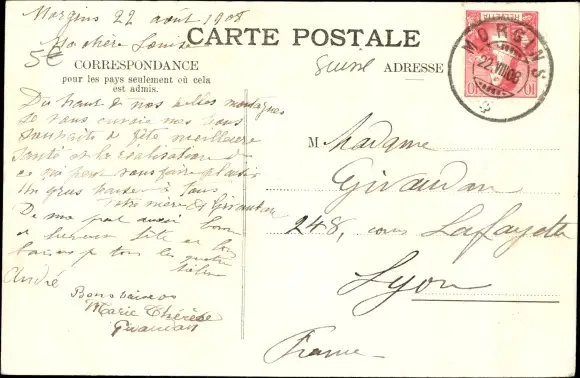 Morgins 22 août 1908
Ma chère Louise
5€
CARTE POSTALE
CORRESPONDANCE
pour les pays seulement où cela
est admis.
Suisse
ADRESSE
HELVETIA
10 10
MORGINS
22.VIII.08
Du haut de nos belles montagnes
Je vous envoie mes bons
souhaits de fête meilleure
santé et la réalisation de
ce qui peut vous faire plaisir
Un gros baiser à tous
Votre mère E Girandan
De ma part aussi bonne
et heureuse fête et bons
baisers à tous les quatre
André
Bons baisers
Marie Thérèse
M Madame
Girandan
248, cours Lafayette
Lyon
France